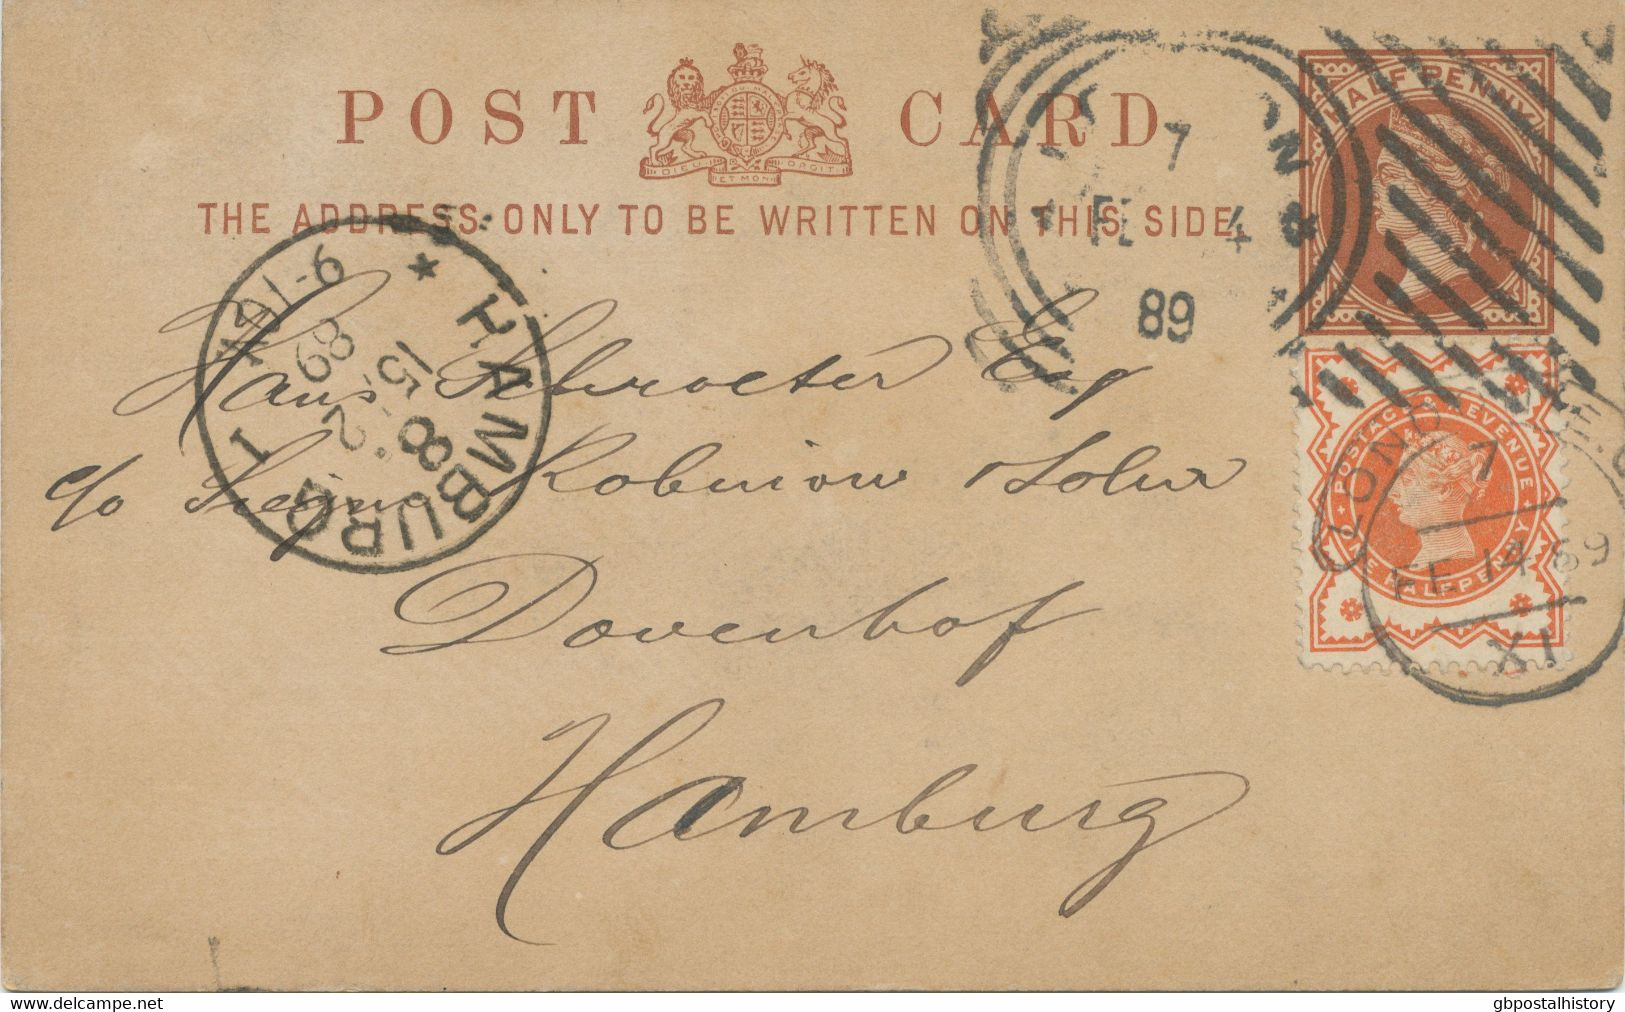 POST CARD
DIEU ET MON DROIT
THE ADDRESS ONLY TO BE WRITTEN ON THIS SIDE.
HALFPENNY
7
FE 4
89
POSTAGE & REVENUE
ONE HALFPENNY
LONDON
7
FE 14 89
XI
* HAMBURG 1
15 2
89
8
Hans Schroeter Esq
c/o Robinow & Sohn
Dovenhof
Hamburg
www.delcampe.net
gbpostalhistory